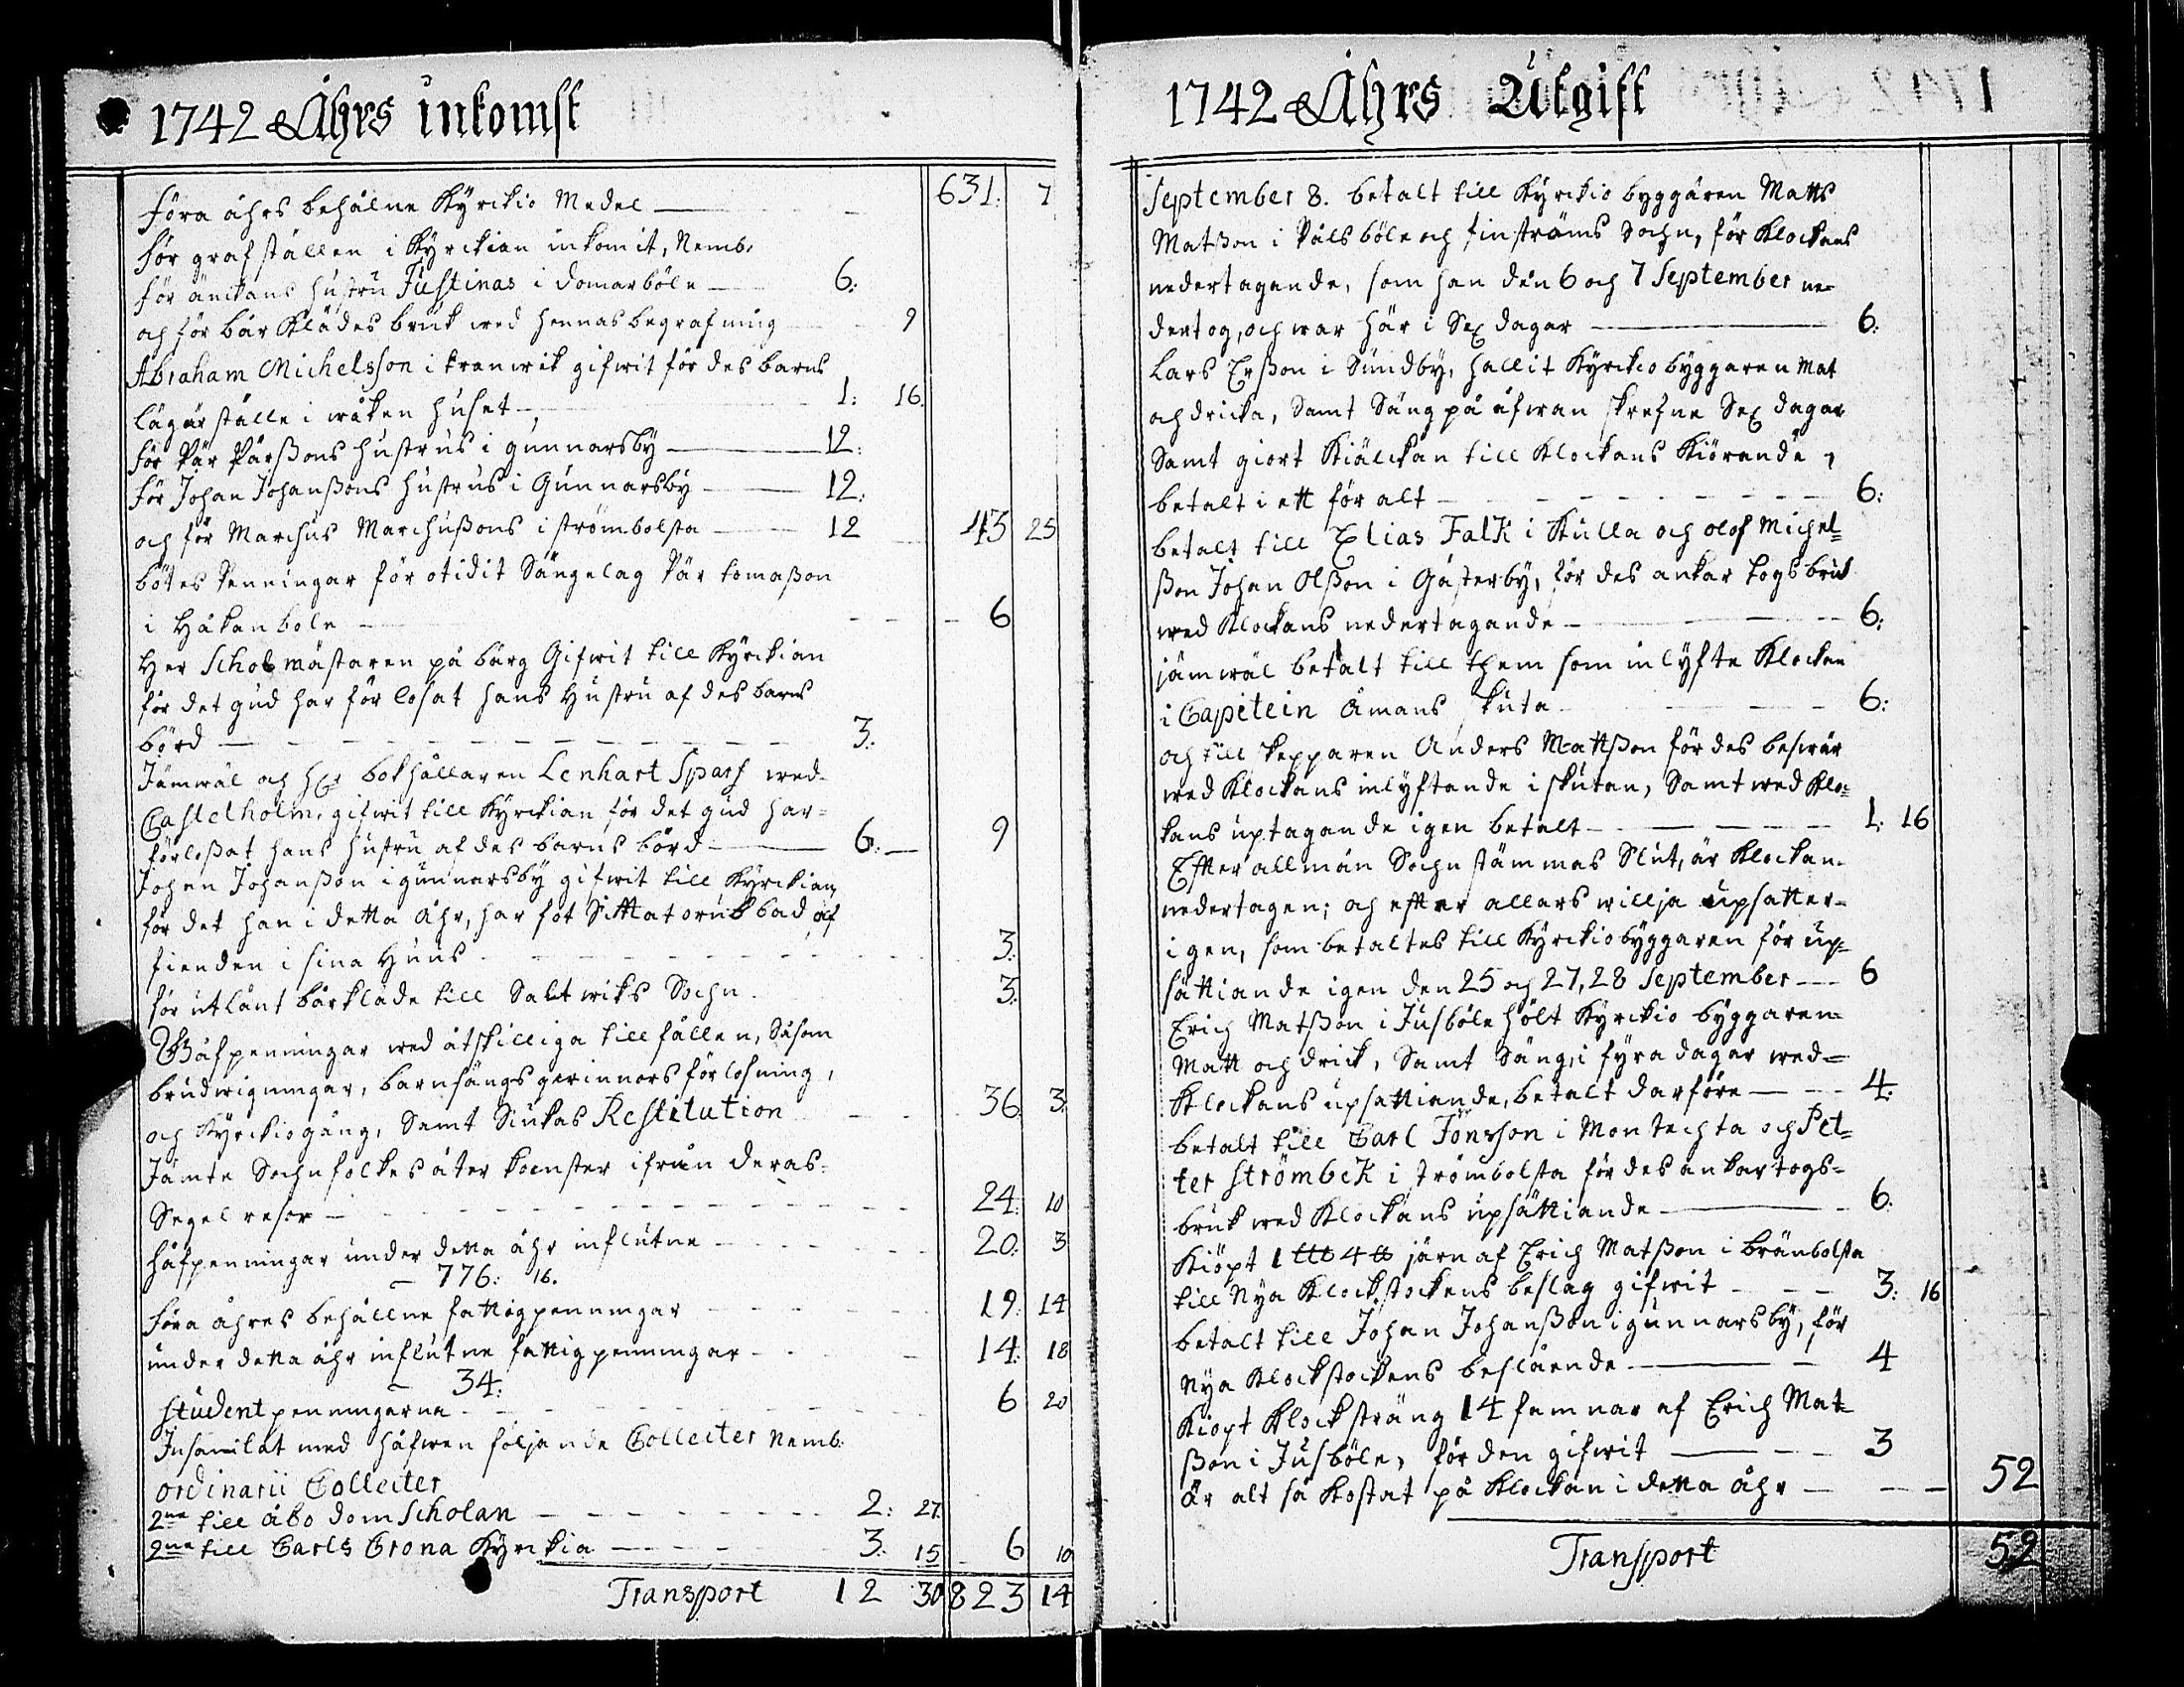 1742 Åhrs inkomst
föra åhrs behålne Kyrckio Medel — 631. 7
för graf ställen i Kyrckian inkomit, Nemb.
för änckans hustru Justinas i domarböle — 6.
och för bår Klädes bruk wed hennas begrafning — 9
Abraham Michelsson i tranwik gifwit för des barns
lägerställe i wåken huset — 1: 16.
för Pär Pärßons hustrus i gunnarsby — 12.
för Johan Johanßons hustrus i Gunnarsby — 12.
och för Marchus Marchußons i strömbolsta — 12 43 25
bötes Penningar för otidit Sängelag Pär tomaßon
i Håkanböle — 6
Her Scholmästaren på bärg Gifwit till Kyrckian
för det gud har förlosat hans Hustru af des barns
börd — 3.
Jämwäl och Hr bokhållaren Lenhart Sparf wed
Castelholm, gifwit till Kyrckian för det gud har=
förloßat hans hustru af des barns börd — 6. — 9
Johan Johanßon i gunnarsby gifwit till Kyrckian
för det han i detta åhr, har fåt af
fienden i sina Huus — 3.
för utlånt bårkläde till Saltwiks Sochn — 3.
Gåfpenningar wed åtskilliga tillfällen, Såsom
brudwigningar, barnsängsqwinnors förlosning,
och Kyrckiogång, Samt Siukas Restitution — 36. 3.
Jämte Sochnfolkes åter komster ifrån deras=
Segel resor — 24. 10
håfpenningar under detta åhr influtne — 20: 3
— 776: 16.
föra åhres behållne fattigpenningar — 19: 14
under detta åhr influtne fattigpenningar — 14: 18
— 34:
studentpenningarne — 6 20
Insamlat med håfwen följande Collecter Nemb.
ordinarii Collecter
2ne till Åbo dom Scholan — 2: 27.
2ne till Carls Crona Kyrckia — 3. 15 6 10
Transport 12 30 823 14
1742 Åhrs Utgift
September 8. betalt till Kyrckio byggaren Matts
Matßon i Pålsböle och finströms Sochn, för Klockans
nedertagande, som han den 6 och 7 September ne=
dertog, och war här i Sex dagar — 6.
Lars Erßon i Sundby, hallit Kyrckio byggaren Mat
och dricka, Samt Säng på åfwan skrefne Sex dagar
Samt giort Kiälckan till Klockans Kiörande,
betalt i ett för alt — 6:
betalt till Elias Falk i Kulla och olof Michel=
ßon Johan Olßon i Gästerby, för des ankar togs bruk
wed Klockans nedertagande — 6.
jämwäl betalt till them som inlyfte Klockan
i Capitein Åmans skuta — 6:
och till skepparen Anders Mattßon för des beswär
wed Klockans inlyftande i skutan, Samt wed Klo=
kans uptagande igen betalt — 1: 16
Efter allmän Sochnstämmas Slut, är Klockan
nedertagen; och efter allars willja upsatter=
igen, som betaltes till Kyrckiobyggaren för up=
sättiande igen den 25 och 27, 28 September — 6
Erich Matßon i Jusböle hölt Kyrckio byggaren=
Matt och drick, Samt Säng, i fyra dagar wed=
Klockans upsättiande, betalt darföre — 4.
betalt till Carl Jonsson i Montechta och Pet=
ter Strömbek i strömbolsta för des ankartogs=
bruk wed Klockans upsättiande — 6.
Kiöpt 1 L℔ 4 ℔ järn af Erich Matßon i bränbolsta
till Nya Klockstockens beslag gifwit — 3: 16
betalt till Johan Johanßon i gunnarsby, för
Nya Klockstockens beslående — 4
Kiöpt Klocksträng 14 famnar af Erich Mat=
ßon i Jusböle, för den gifwit — 3
är alt så kostat på Klockan i detta åhr — 52
Transport 52